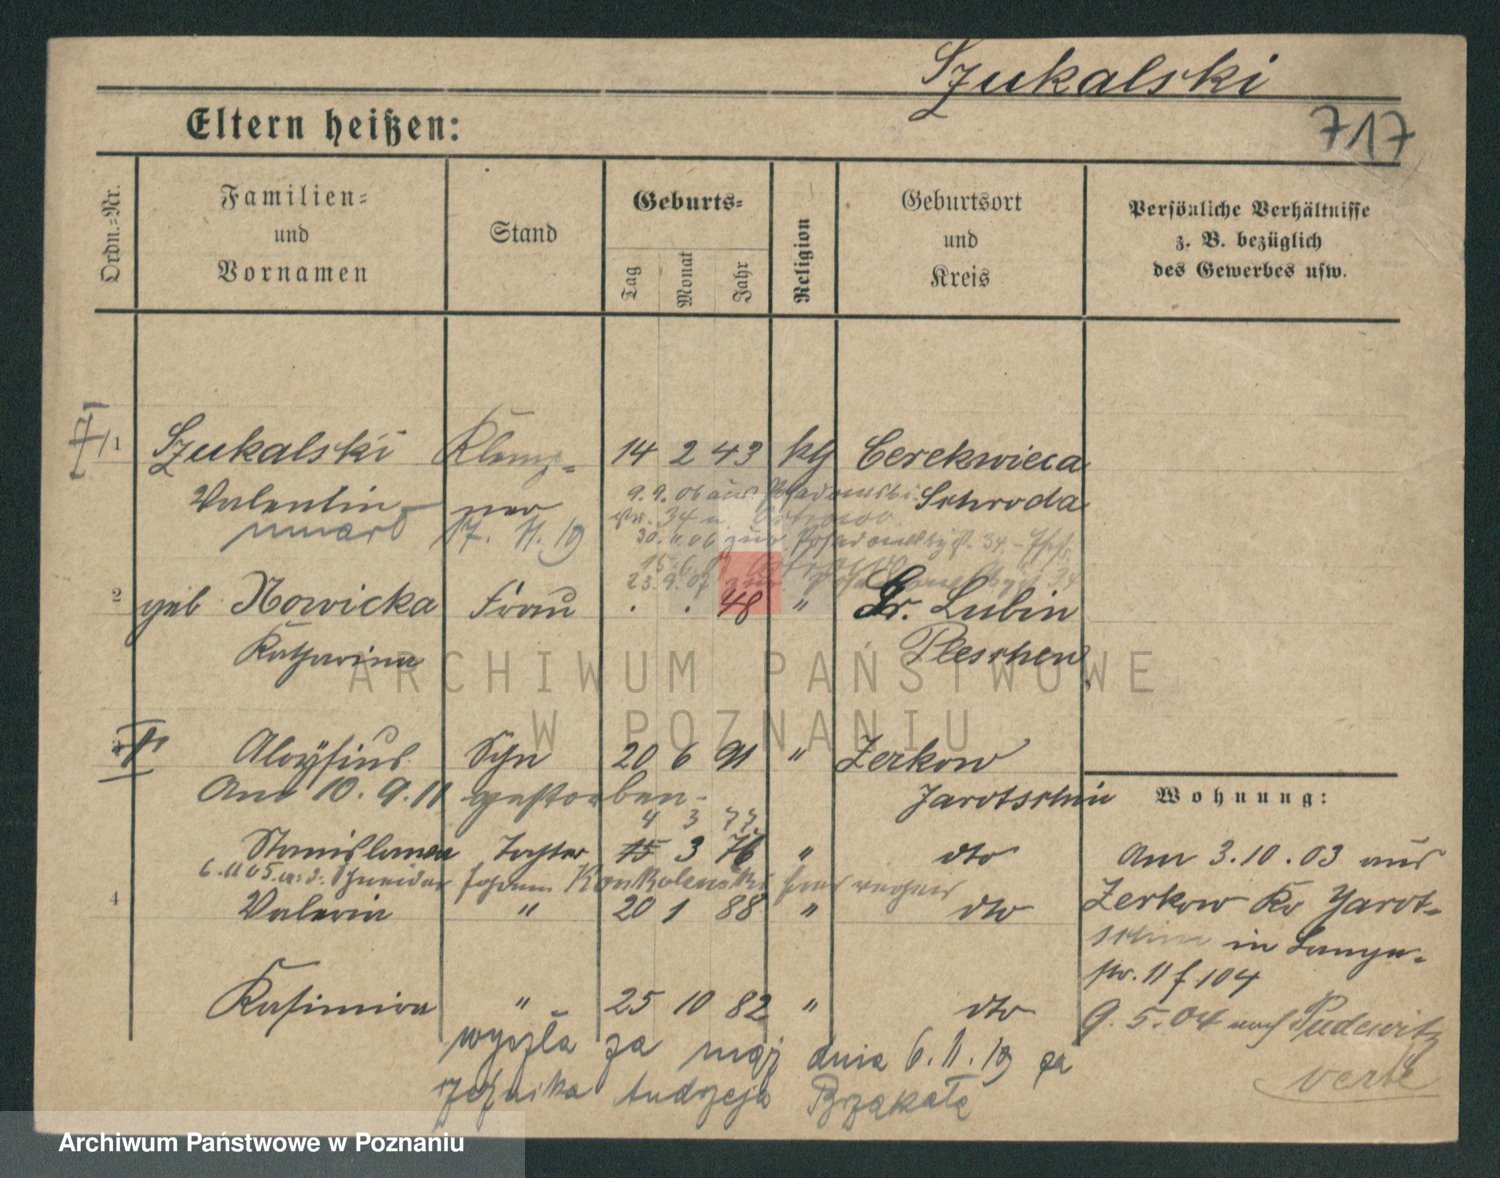 Szukalski
717
Eltern heißen:
Ordn.=Nr.
Familien=
und
Vornamen
Stand
Geburts=
Tag
Monat
Jahr
Religion
Geburtsort
und
Kreis
Persönliche Verhältnisse
z. B. bezüglich
des Gewerbes usw.
1 Szukalski Klemp- 14 2 43 kg Cerekwica
Valentin ner Schroda
umarł 17. 11. 19
9.9.06 aus
30.11.06 zur.
23.9.07 zur.
2 geb Nowicka Frau . . 48 " Gr. Lubin
Katharina Pleschen
3 Aloysius Sohn 20 6 91 " Zerkow
Am 10.9.11 gestorben. Jarotschin
4 3 77
Stanislawa Tochter 15 3 76 " dto
6.11.05
4 Valeria " 20 1 88 " dto
Kasimira " 25 10 82 " dto
wyszła za mąż dnia 6.11.19 za
rzeźnika Andrzeja Przykałę
Wohnung:
Am 3.10.03 aus
Zerkow Kr Jarot-
schin in Langen-
str. 11 f 104
9.5.04 nach Pudewitz
verte
ARCHIWUM PAŃSTWOWE
W POZNANIU
Archiwum Państwowe w Poznaniu